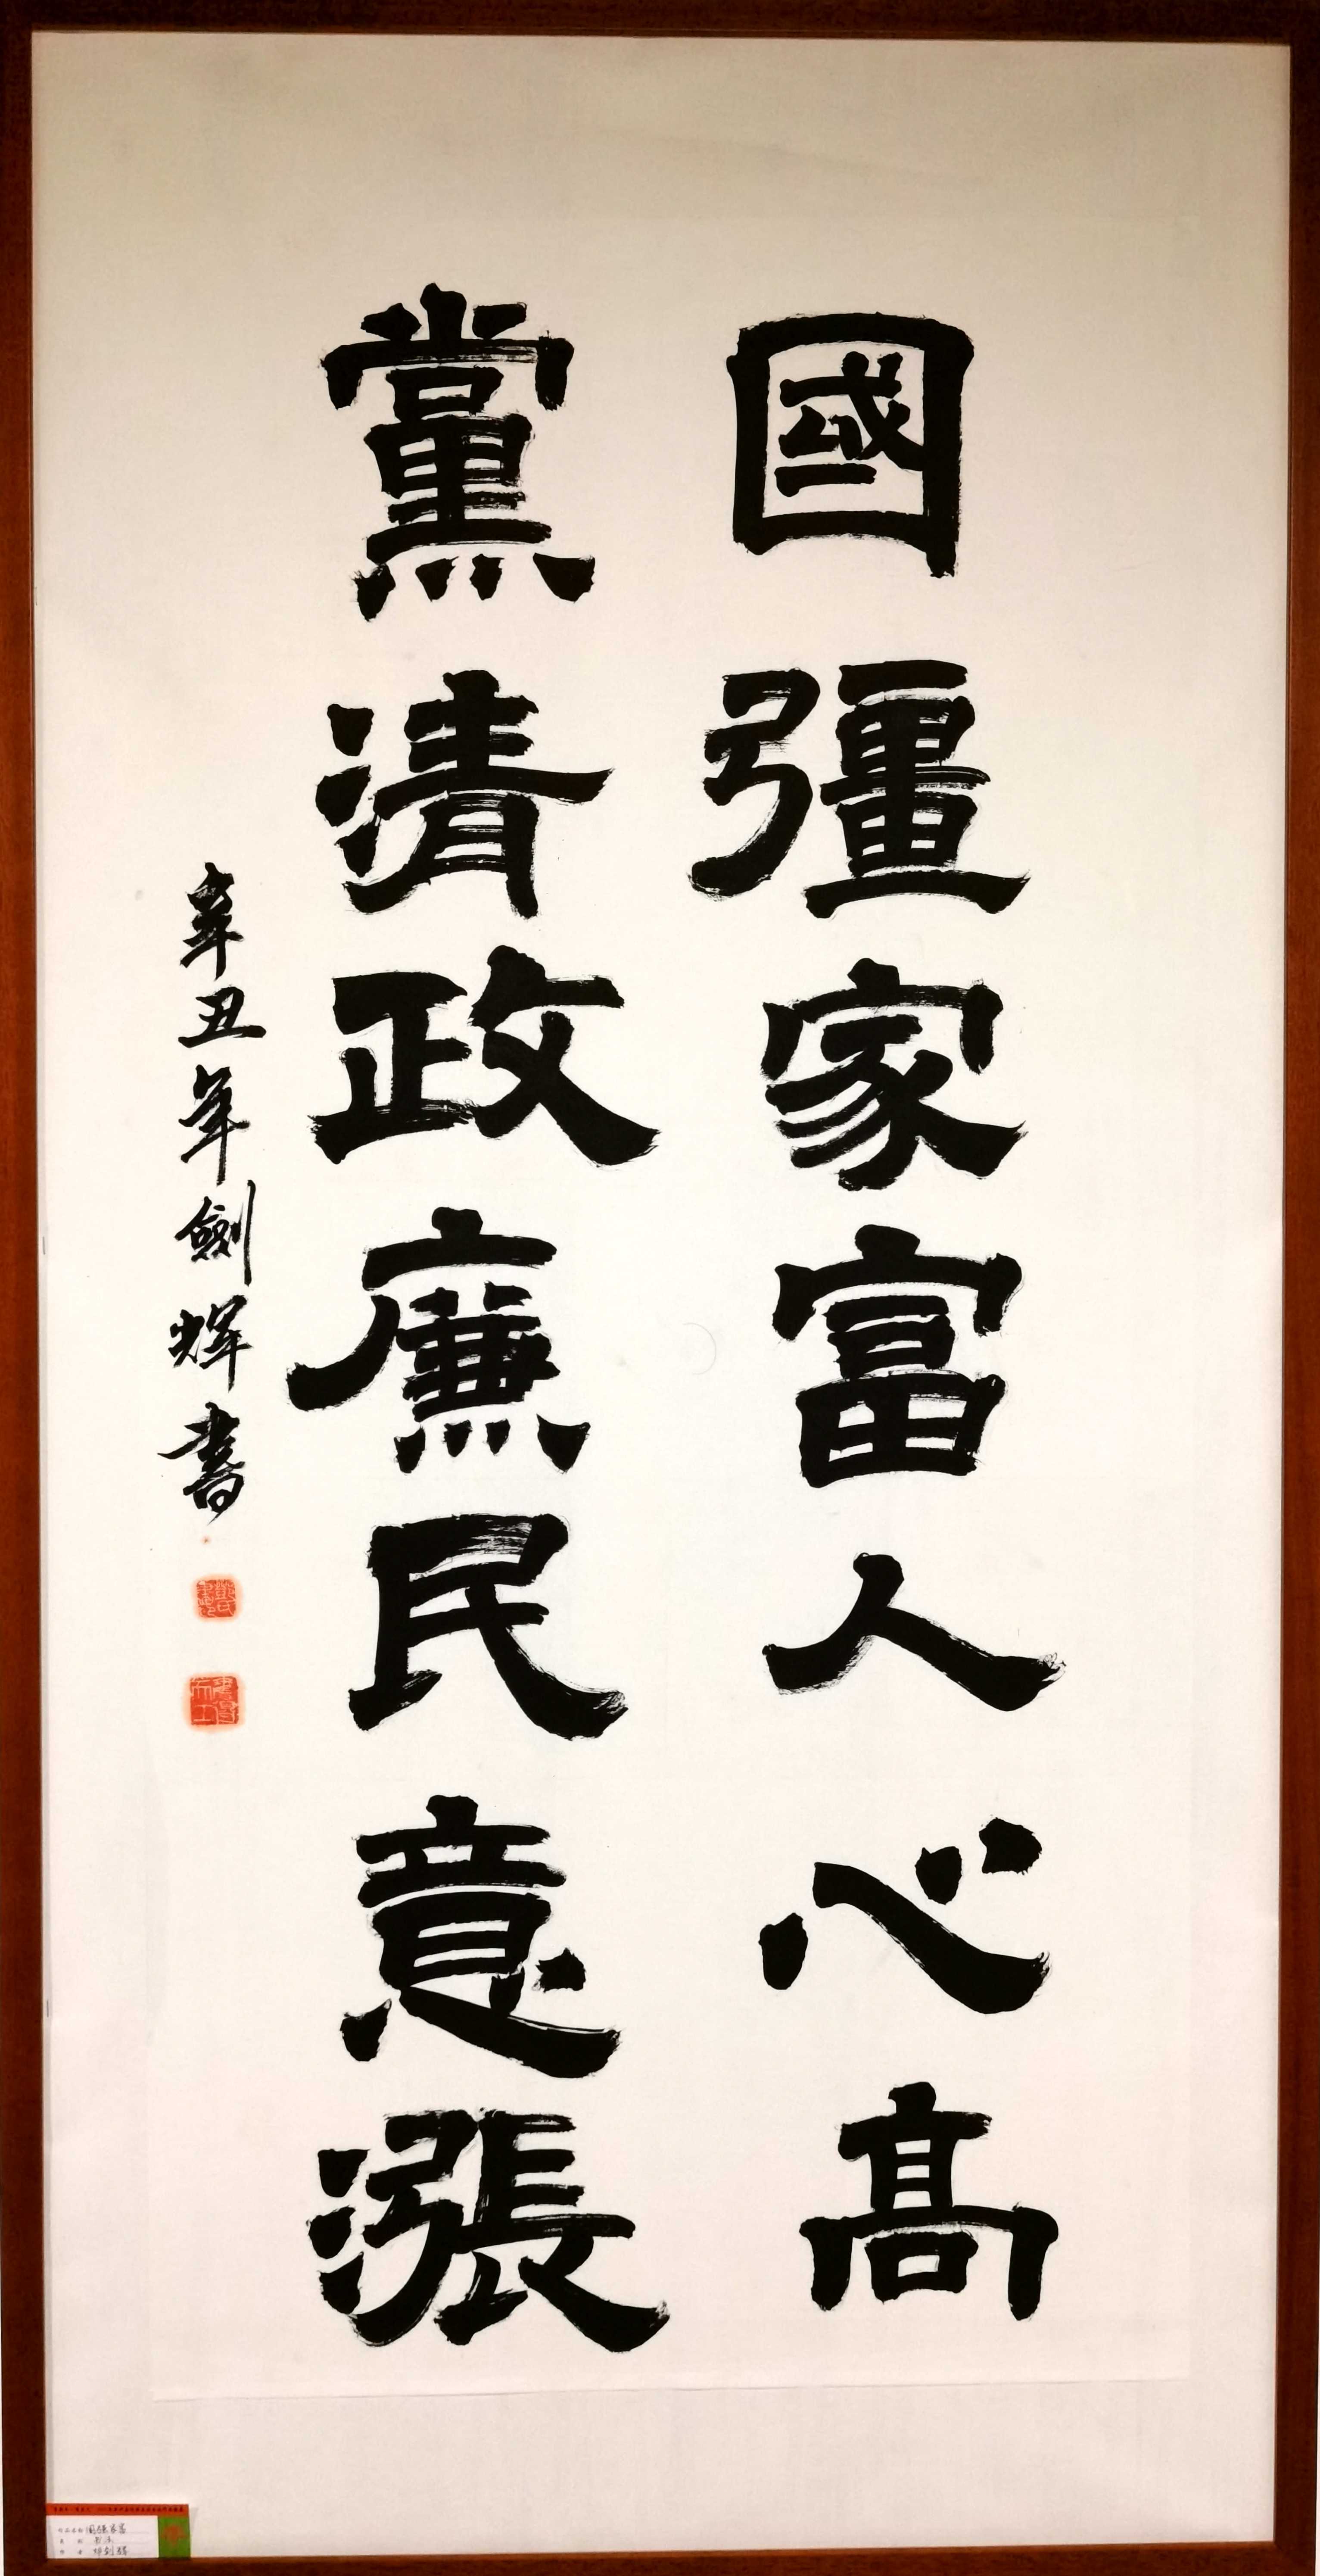 國彊家富人心高
黨清政廉民意漲
辛丑年劍輝書